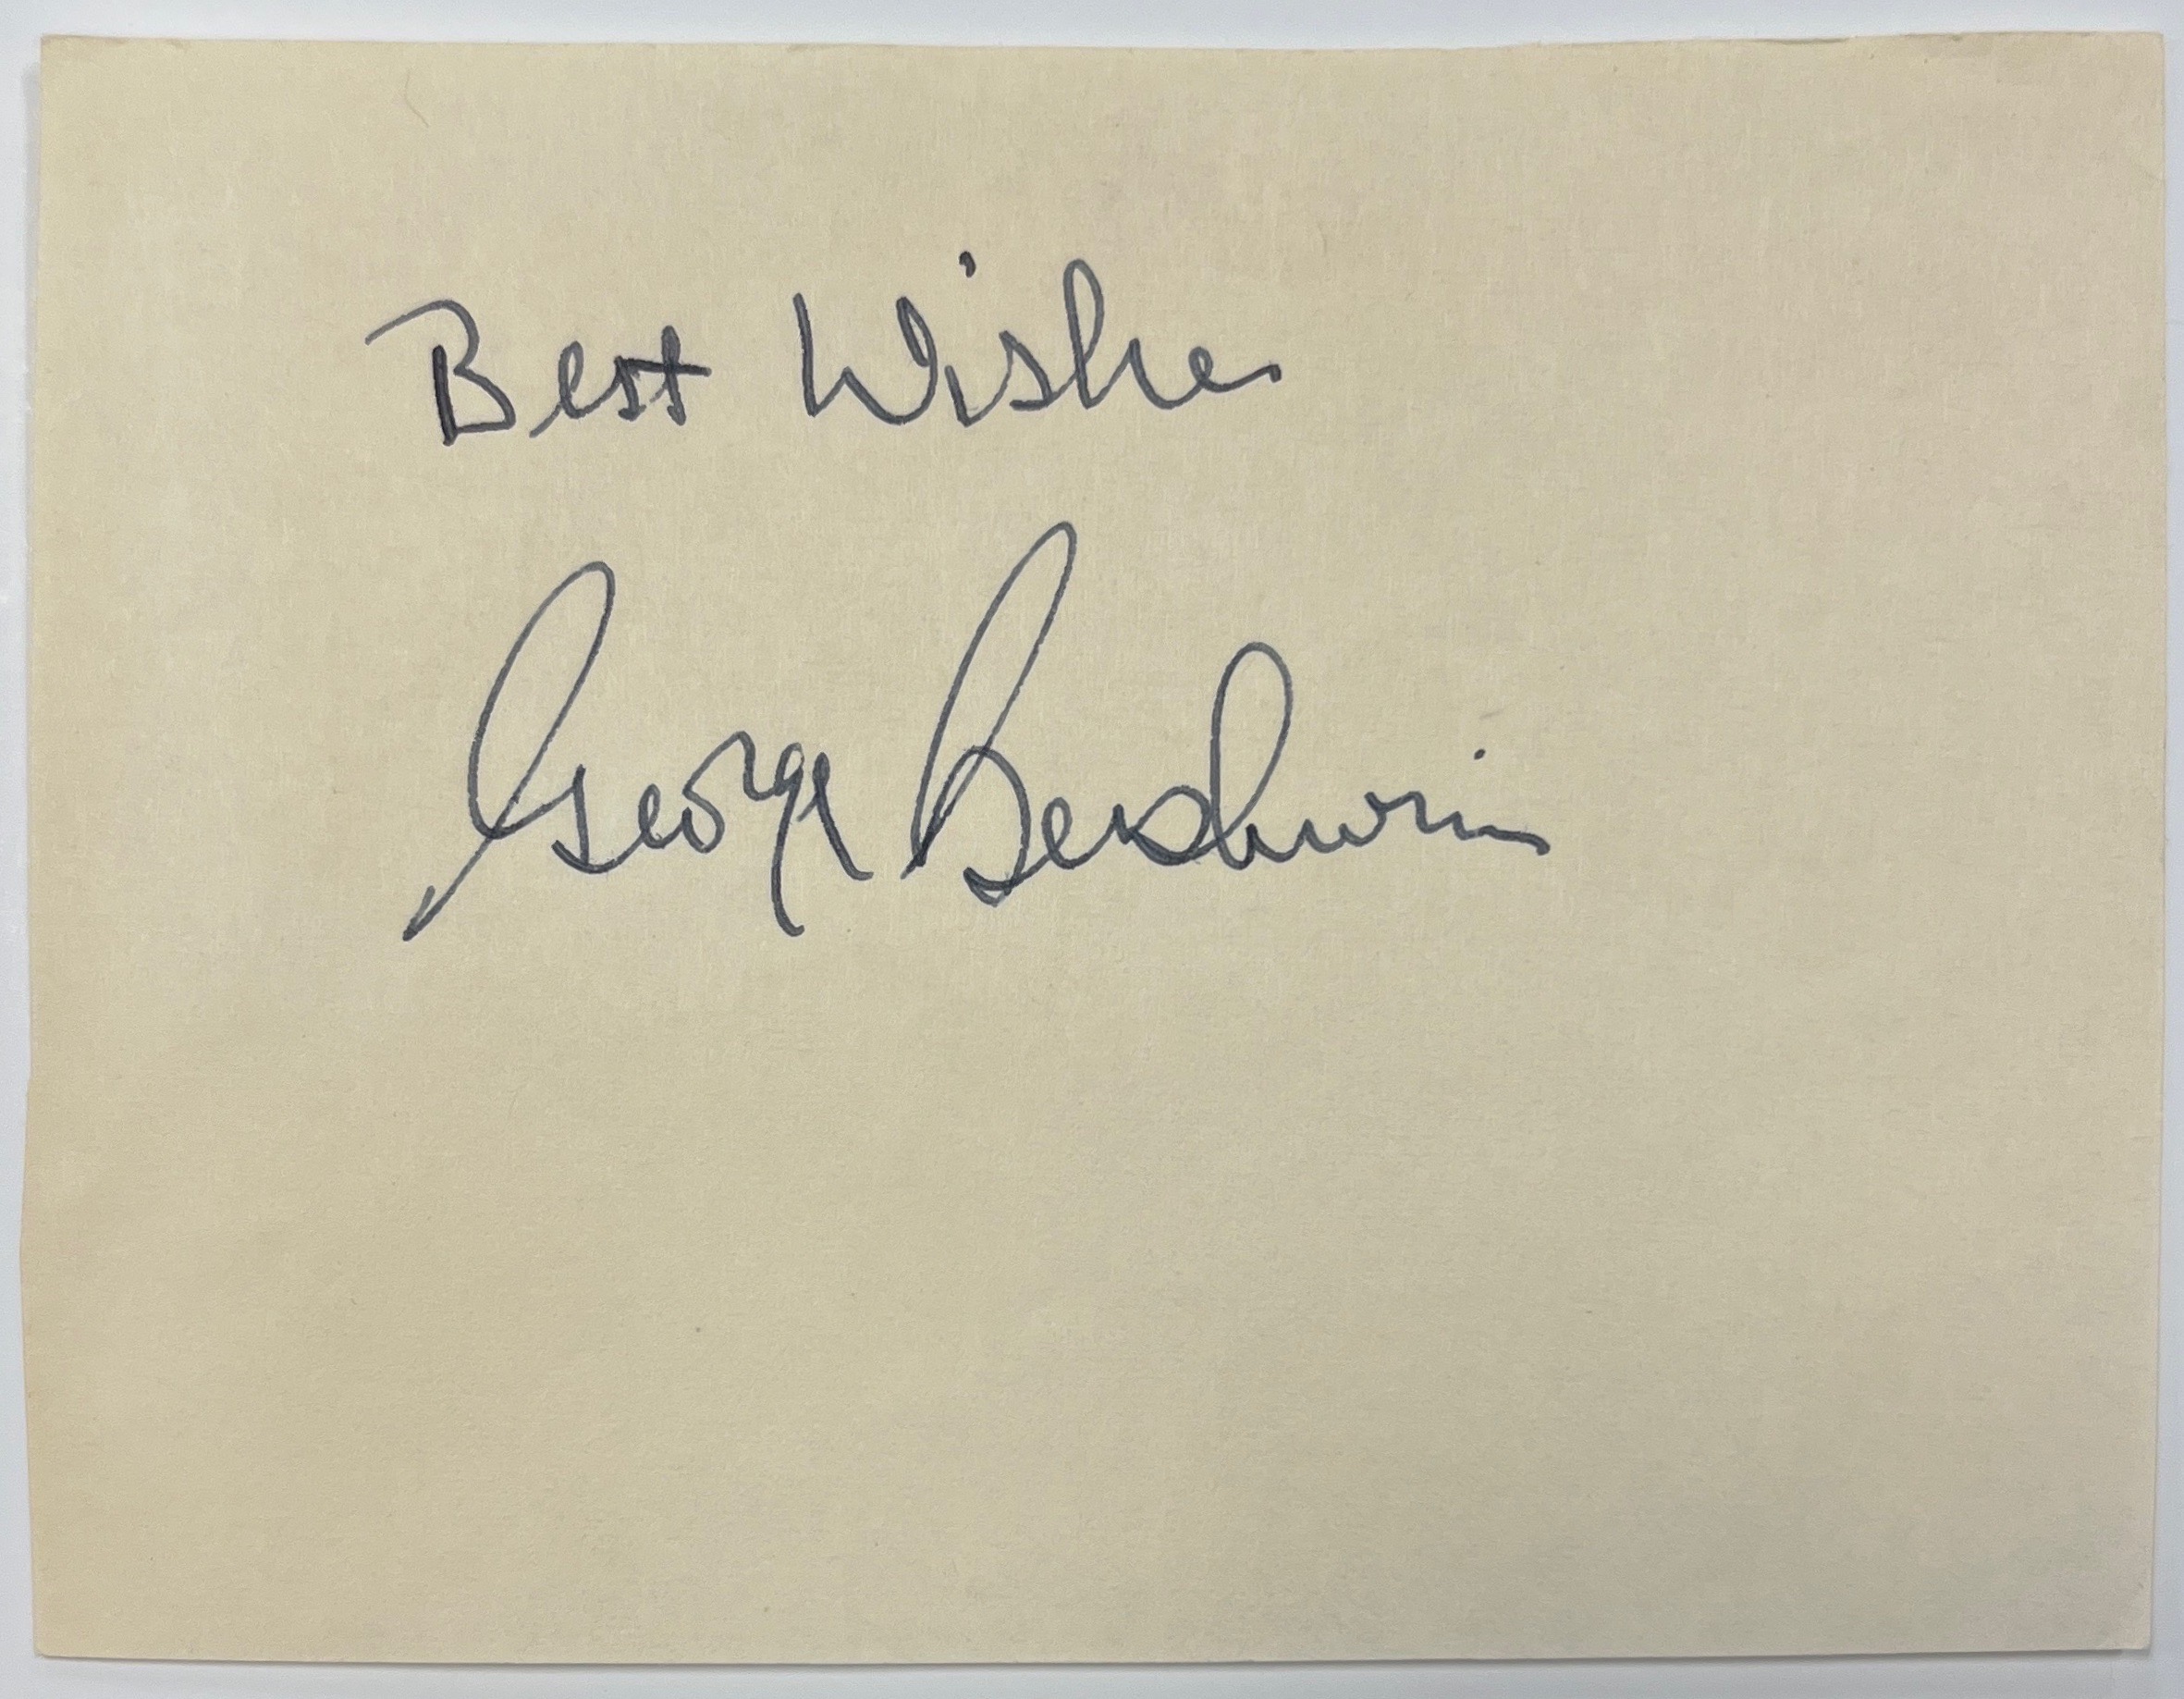 Best Wishes
George Gershwin